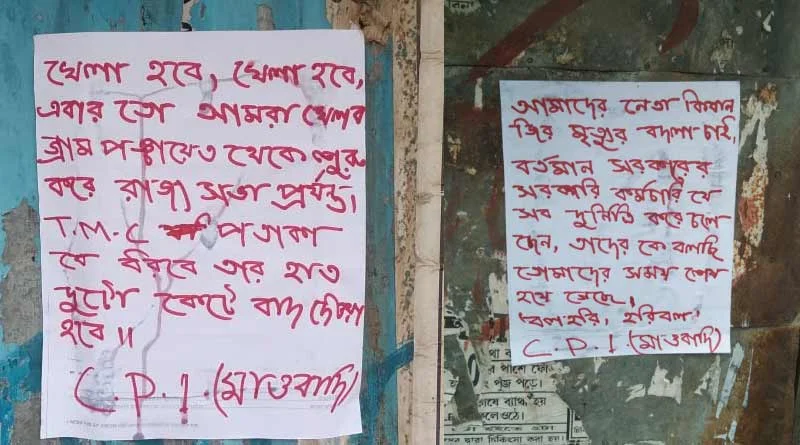 খেলা হবে, খেলা হবে,
এবার তো আমরা খেলব
গ্রাম পঞ্চায়েত থেকে শুরু
করে রাজ্য সভা প্রর্যন্ত।
T.M.C পতাকা
যে ধরবে তার হাত
দুটো কেটে বাদ দৌওয়া
হবে।।
C.P.I.(মাওবাদি)
আমাদের নেতা কিষান
জির মৃত্যুর বদলা চাই,
বর্তমান সরকারের
সরকারি কর্মচারি যে
সব দুর্নিতি করে চলে
ছেন, তাদের কে বলছি
তোমাদের সময় শেষ
হয়ে গেছে,
'বল হরি, হরিবল'
C.P.I (মাওবাদি)
র পাশে ফো
পুঁজ পড়ে।
ব্যাথা হয়
ফুলে ওঠে।
দ্বারা চিকিৎসা করা হয়।